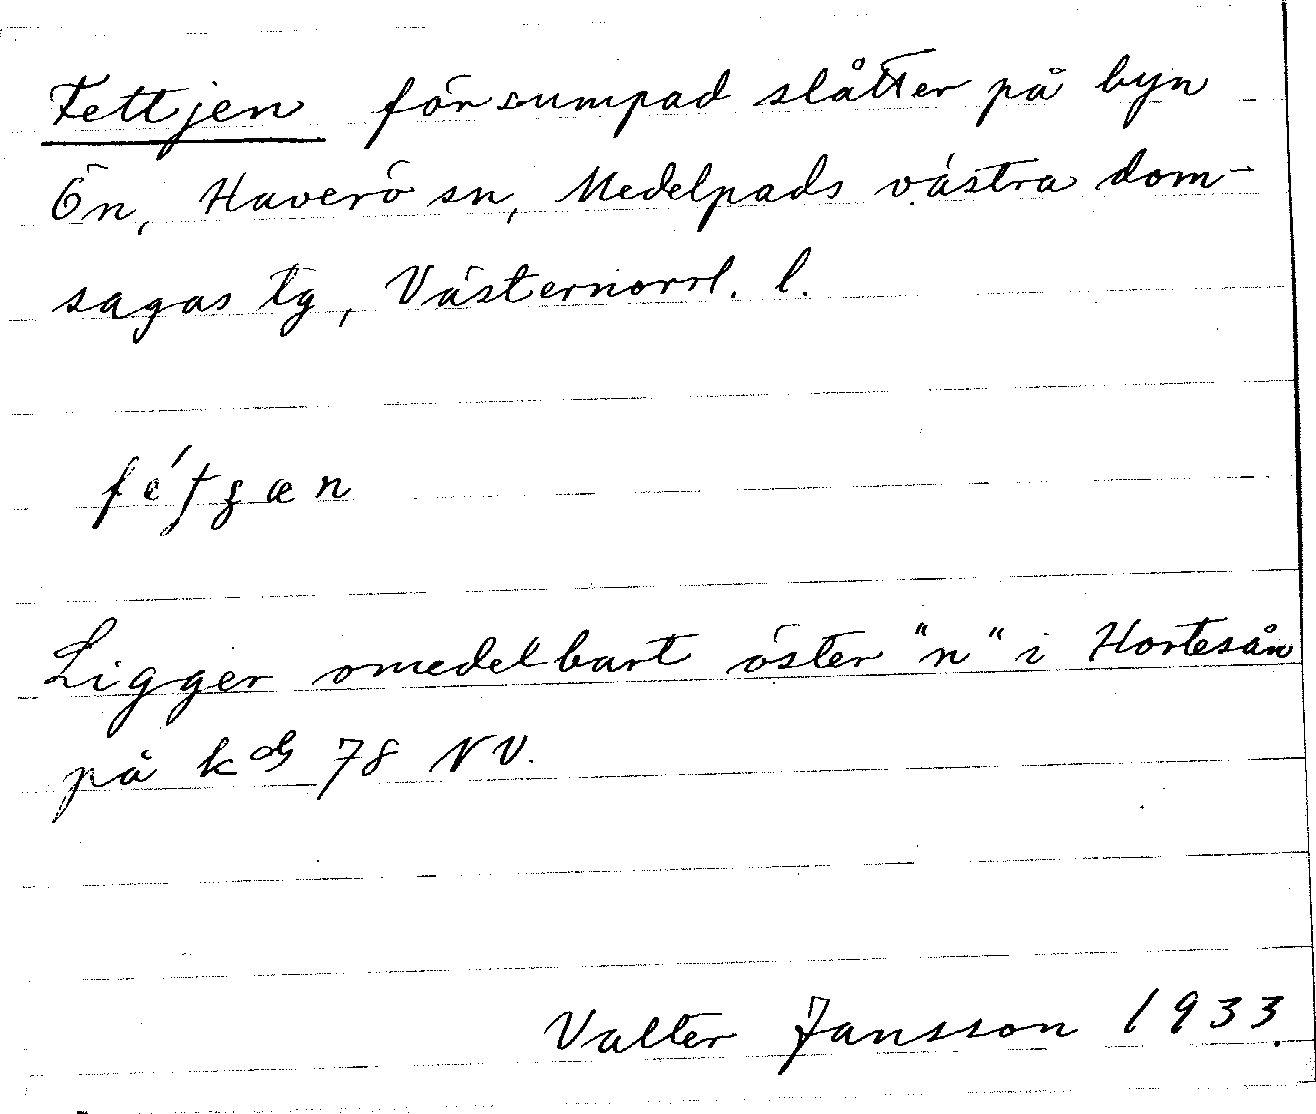 Fettjen försumpad slåtter på byn
Ön, Haverö sn, Medelpads västra dom-
sagas tg, Västernorrl. l.
Ligger omedelbart öster "n" i Hortesån
på kbl 78 NV.
Valter Jansson 1933.